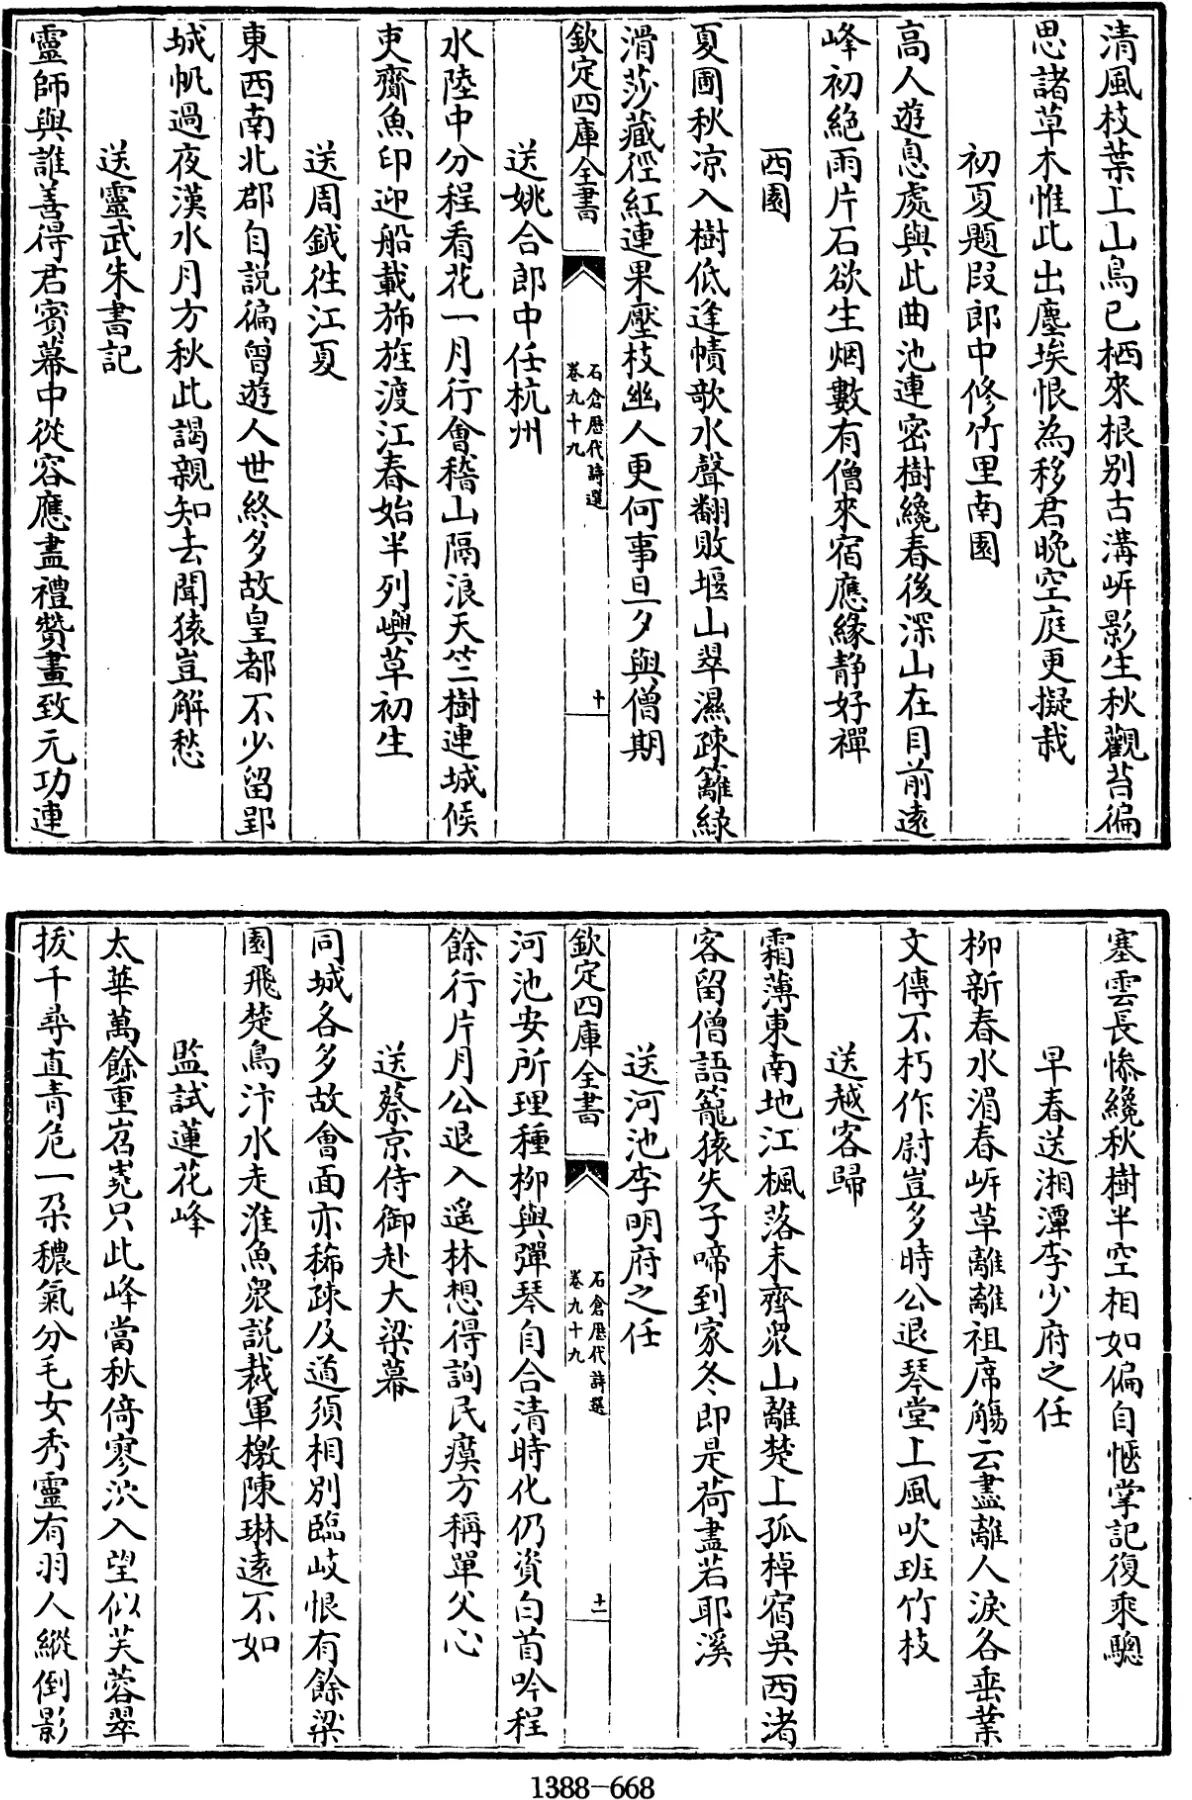 清風枝葉上山鳥已栖來根别古溝岍影生秋觀苔徧
思諸草木惟此出塵埃恨為移君晩空庭更擬栽
初夏題段郎中修竹里南園
高人遊息處與此曲池連密樹纔春後深山在目前遠
峰初絶雨片石欲生烟數有僧來宿應緣静好禪
西園
夏圃秋凉入樹低逢幘欹水聲翻敗堰山翠濕疎籬緑
滑莎藏徑紅連果壓枝幽人更何事旦夕與僧期
欽定四庫全書
石倉歷代詩選
卷九十九
十
送姚合郎中任杭州
水陸中分程看花一月行會稽山隔浪天竺樹連城候
吏齋魚印迎船載斾旌渡江春始半列嶼草初生
送周鉞徃江夏
東西南北郡自説徧曾遊人世終多故皇都不少留郢
城帆過夜漢水月方秋此謁親知去聞猿豈解愁
送靈武朱書記
靈師與誰善得君賓幕中從容應盡禮贊畫致元功連
塞雲長慘纔秋樹半空相如偏自愜掌記復乘驄
早春送湘潭李少府之任
柳新春水湄春岍草離離祖席觴云盡離人淚各垂葉
文傳不朽作尉豈多時公退琴堂上風吹班竹枝
送越客歸
霜薄東南地江楓落未齊衆山離楚上孤棹宿吳西渚
客留僧語籠猿失子啼到家冬即是荷盡若耶溪
送河池李明府之任
欽定四庫全書
石倉歷代詩選
卷九十九
十一
河池安所理種柳與彈琴自合清時化仍資白首吟程
餘行片月公退入遥林想得詢民瘼方稱單父心
送蔡京侍御赴大梁幕
同城各多故會面亦稀疎及道須相别臨岐恨有餘梁
園飛楚鳥汴水走淮魚衆説裁軍檄陳琳遠不如
監試蓮花峰
太華萬餘重岧嶤只此峰當秋倚寥泬入望似芙蓉翠
拔千尋直青危一朶穠氣分毛女秀靈有羽人縱倒影
1388-668